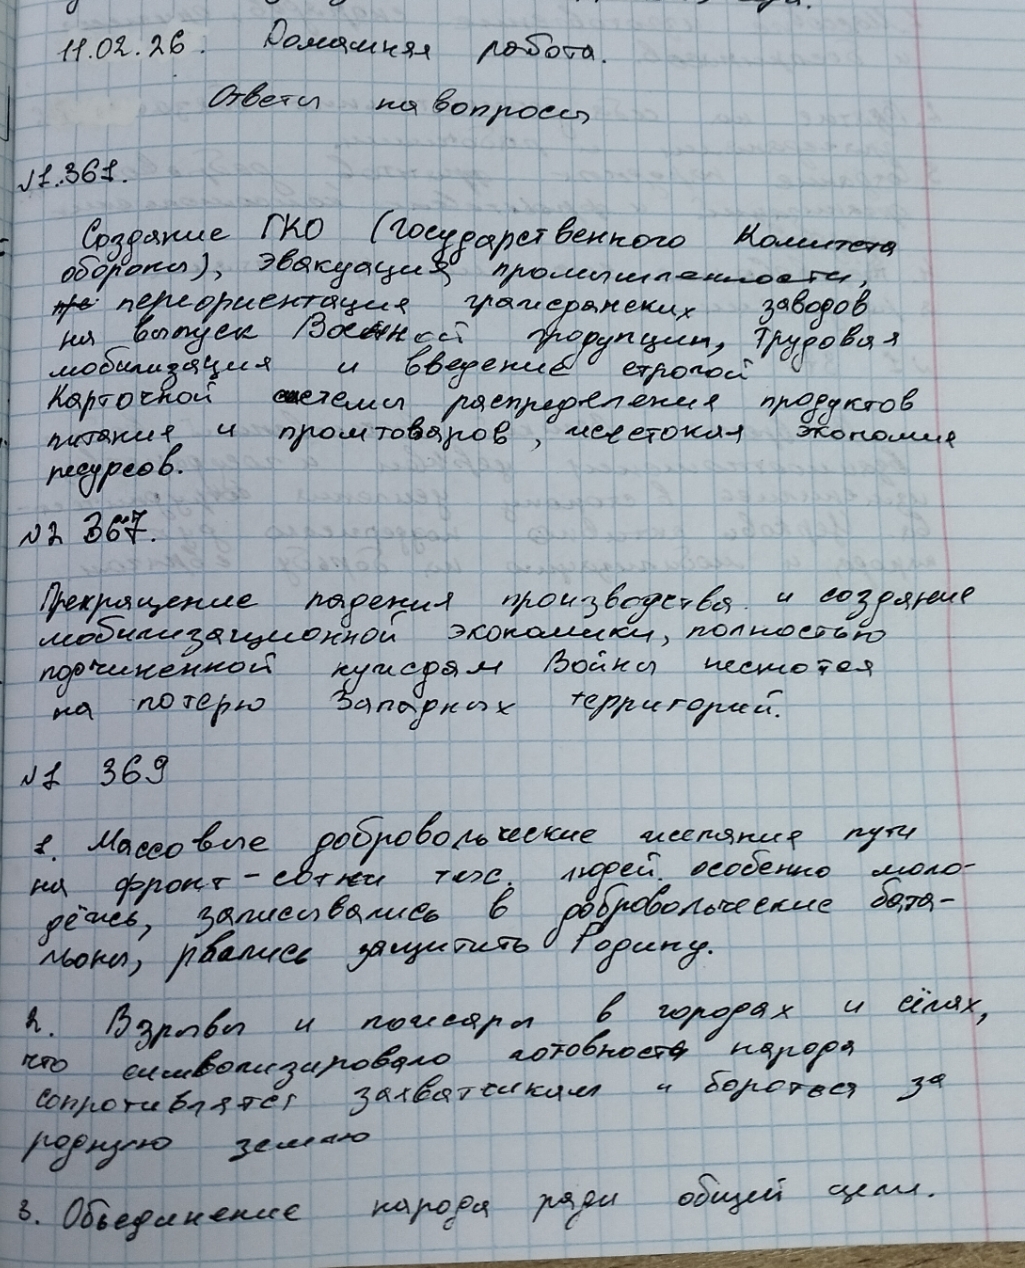 11.02.26. Домашняя работа.
Ответы на вопросы
№1.361.
Создание ГКО (Государственного Комитета
обороны), эвакуация промышленности,
переориентация гражданских заводов
на выпуск Военной продукции, Трудовая
мобилизация и введение строгой
Карточной системы распределения продуктов
питания и промтоваров, жестокая экономия
ресурсов.
№2 367.
Прекращение падения производства и создание
мобилизационной экономики, полностью
подчиненной нуждам Войны несмотея
на потерю Западных территорий.
№1 369
1. Массовые добровольческие желания пути
на фронт - сотни тыс. людей. особенно моло-
дёжь, записывались в добровольческие бата-
льоны, рвались защитить Родину.
2. Взрывы и пожары в городах и сёлах,
что символизировало готовность народа
сопротивлятся захватчикам и бороться за
родную землю
3. Объединение народа ради общей цели.